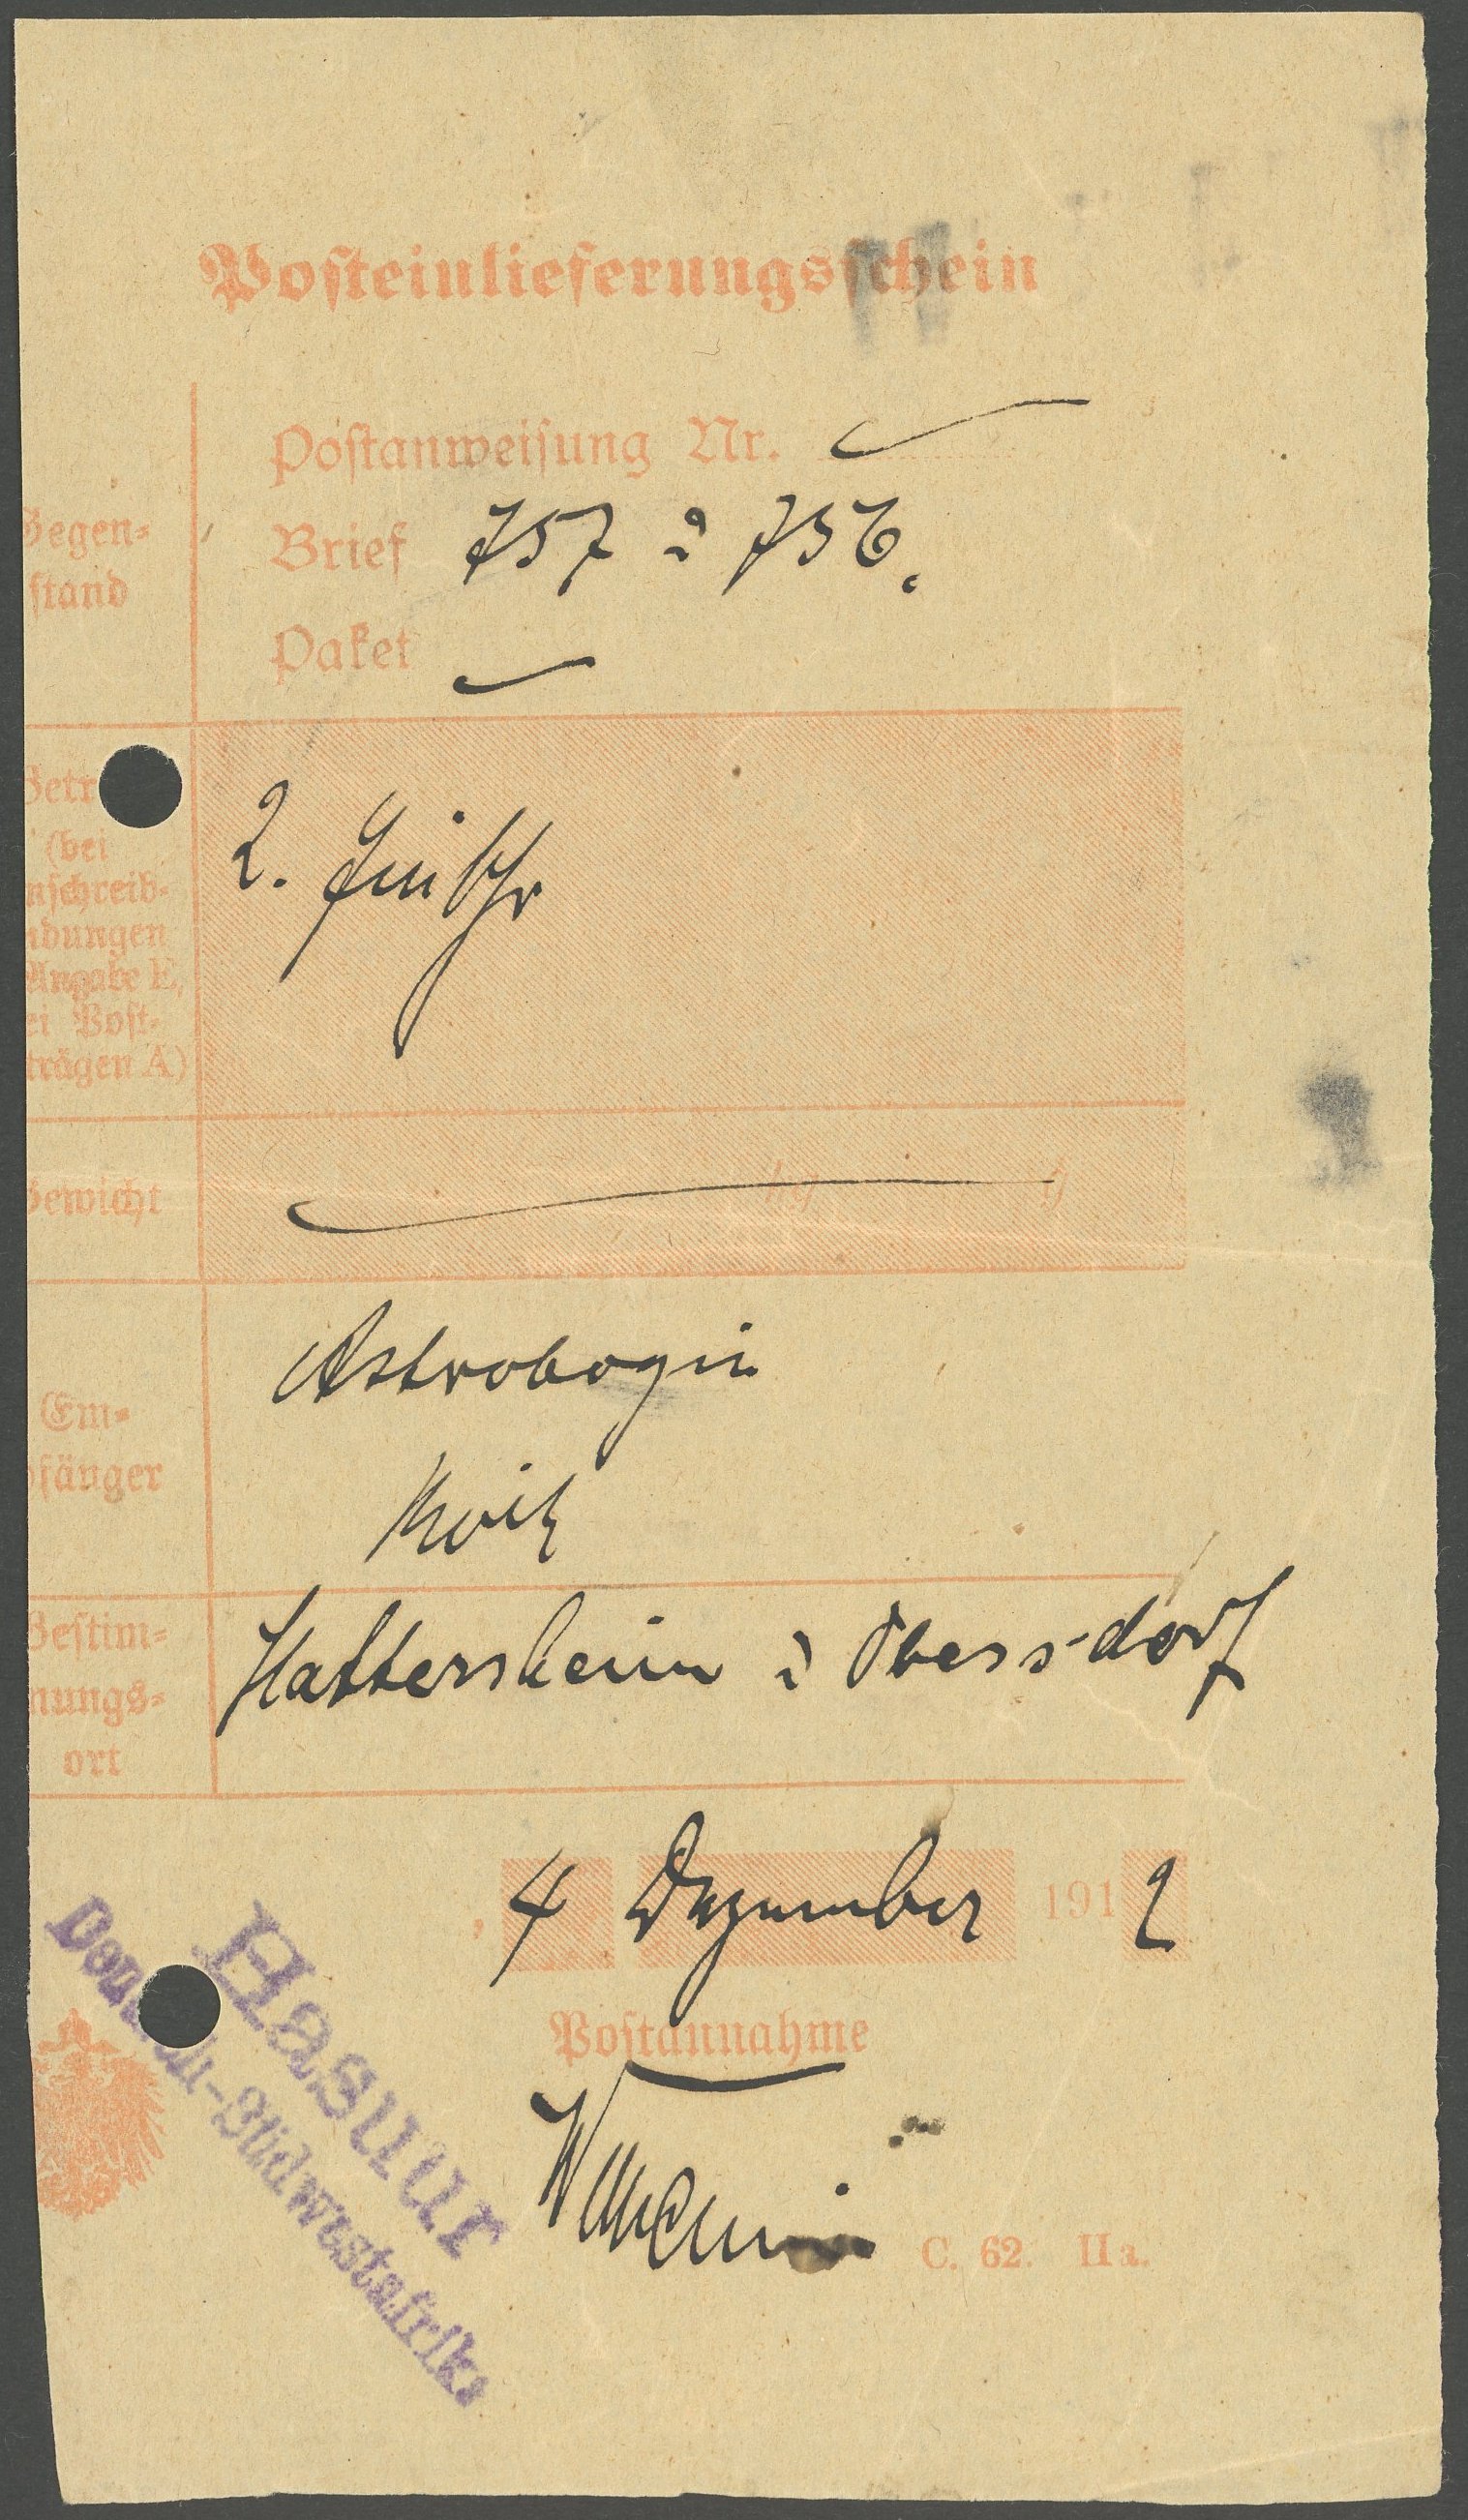 Posteinlieferungsschein
Postanweisung Nr.
Gegen=
stand
Brief 757 & 756.
Paket
Betr
(bei
nschreib=
ndungen
Angabe E,
ei Post=
trägen A)
2.
Gewicht kg g
Em=
pfänger
Astrobogin
Bestim=
mungs=
ort
Hattersheim & Obersdorf
, 4 Dezember 1912
Postannahme
C. 62. IIa.
Hasuur
Deutsch-Südwestafrika